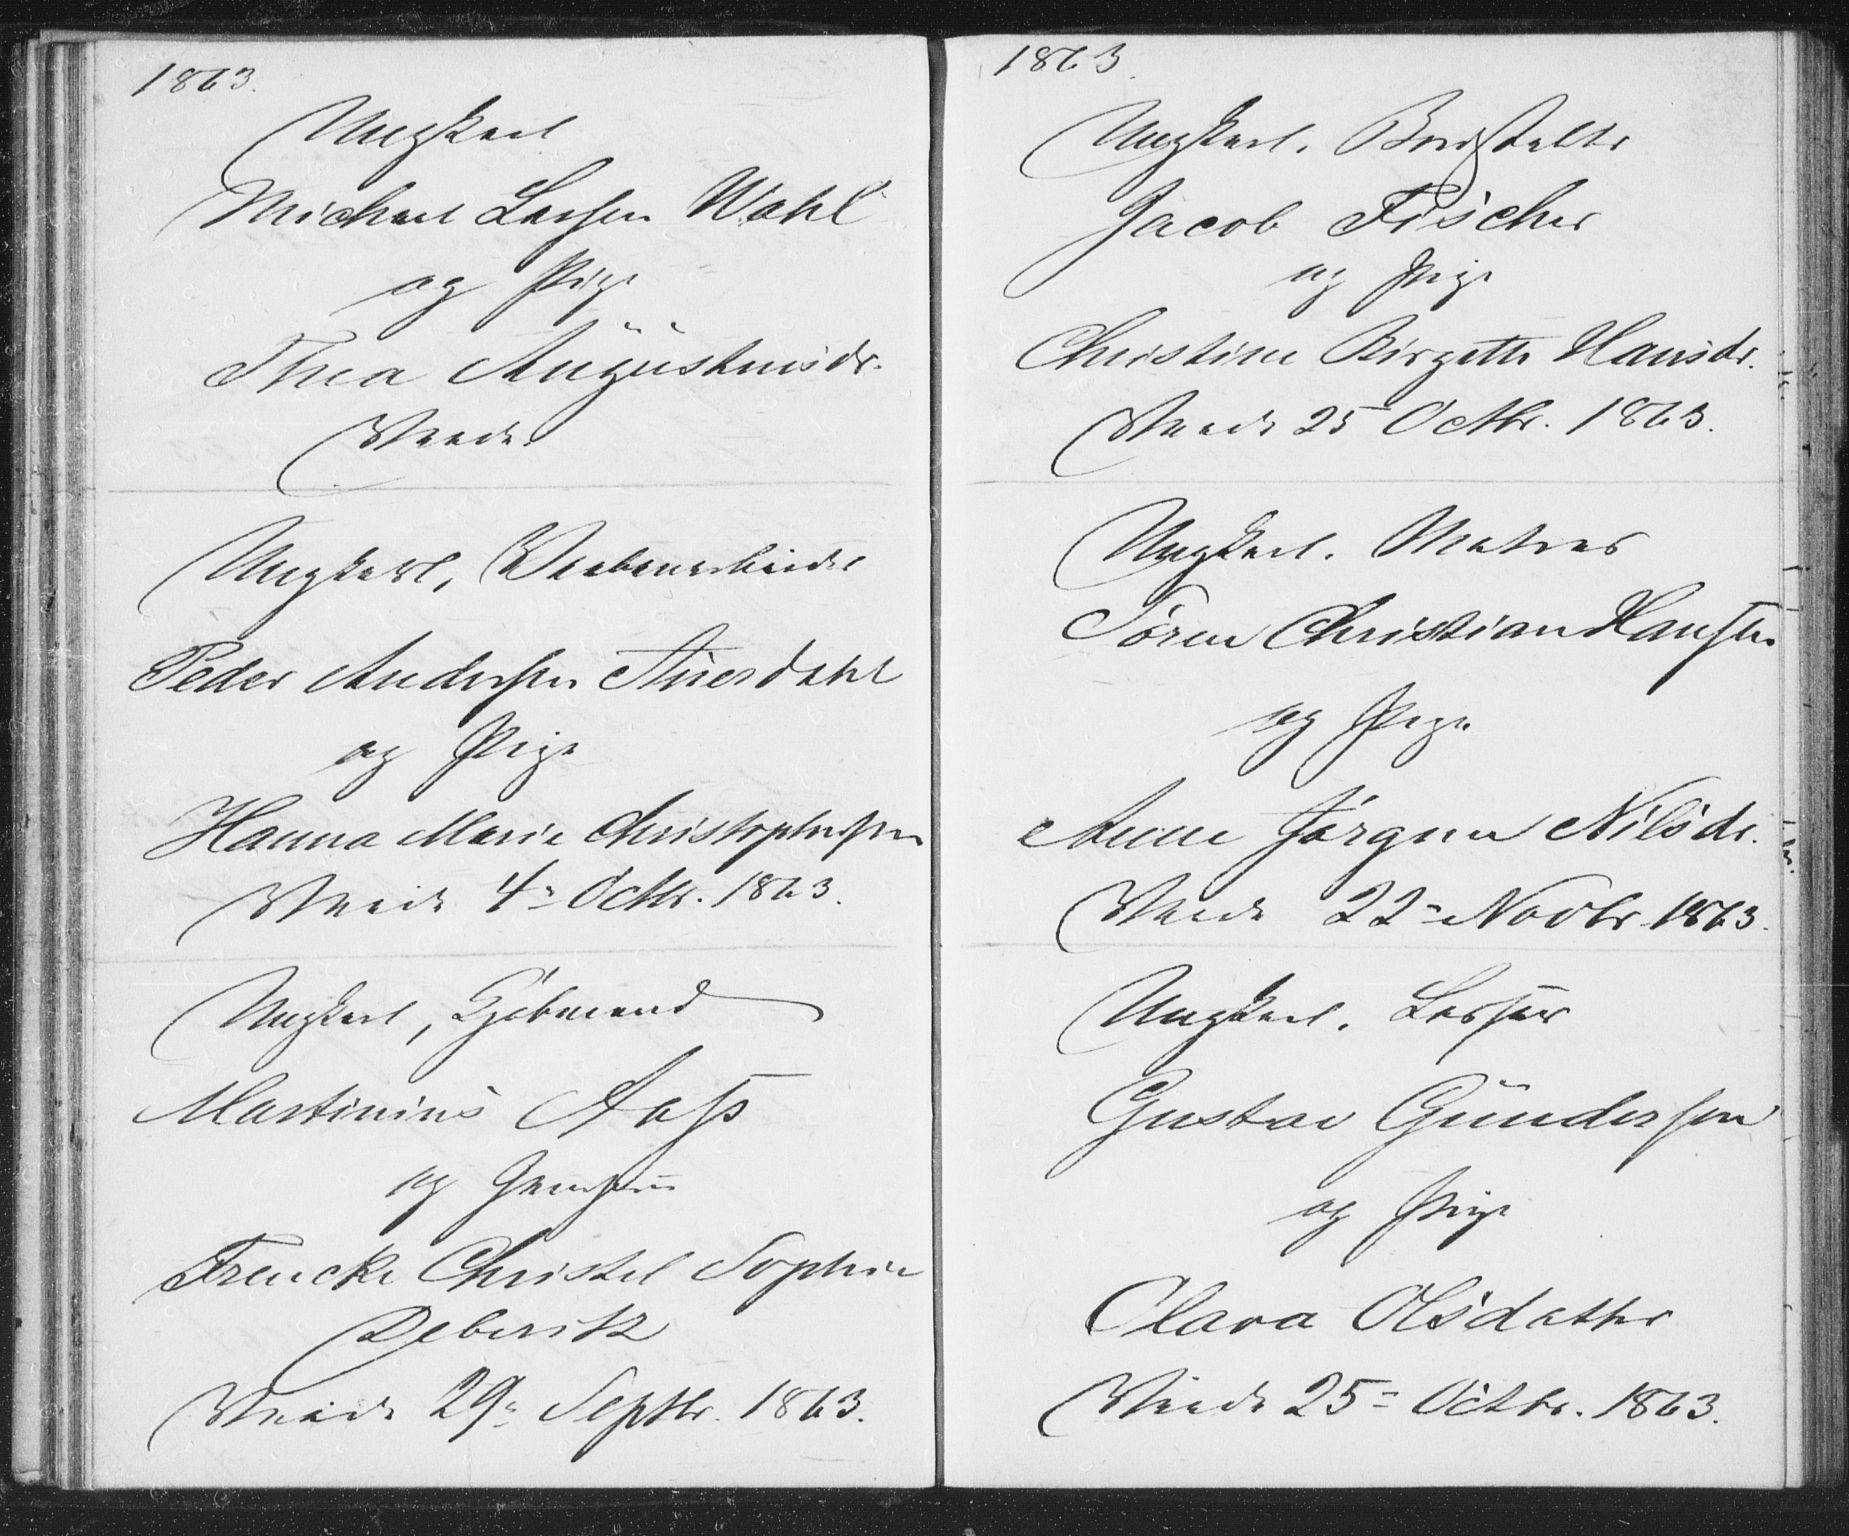 1863.
Ungkarl
Michael Larsen Wahl
og Pige
Thea Augustinusdr.
Viede
Ungkarl,
Peder Andersen
og Pige
Hanna Marie Christophersen
Viede 4de Octbr. 1863.
Ungkarl, Kjøbmand
Martinius Aass
og
Frencke Christel Sophie
Deberitz
Viede 29de Septbr. 1863.
1863.
Ungkarl.
Jacob Fischer
og Pige
Christine Birgitte Hansdr.
Viede 25 Octbr. 1863.
Ungkarl. Matros
Sören Christian Hansen
og Pige
Anne Jörgine Nilsdr.
Viede 22de Novbr. 1863.
Ungkarl.
Gustav Gundersen
og Pige
Clara Olsdatter
Viede 25de Octbr. 1863.